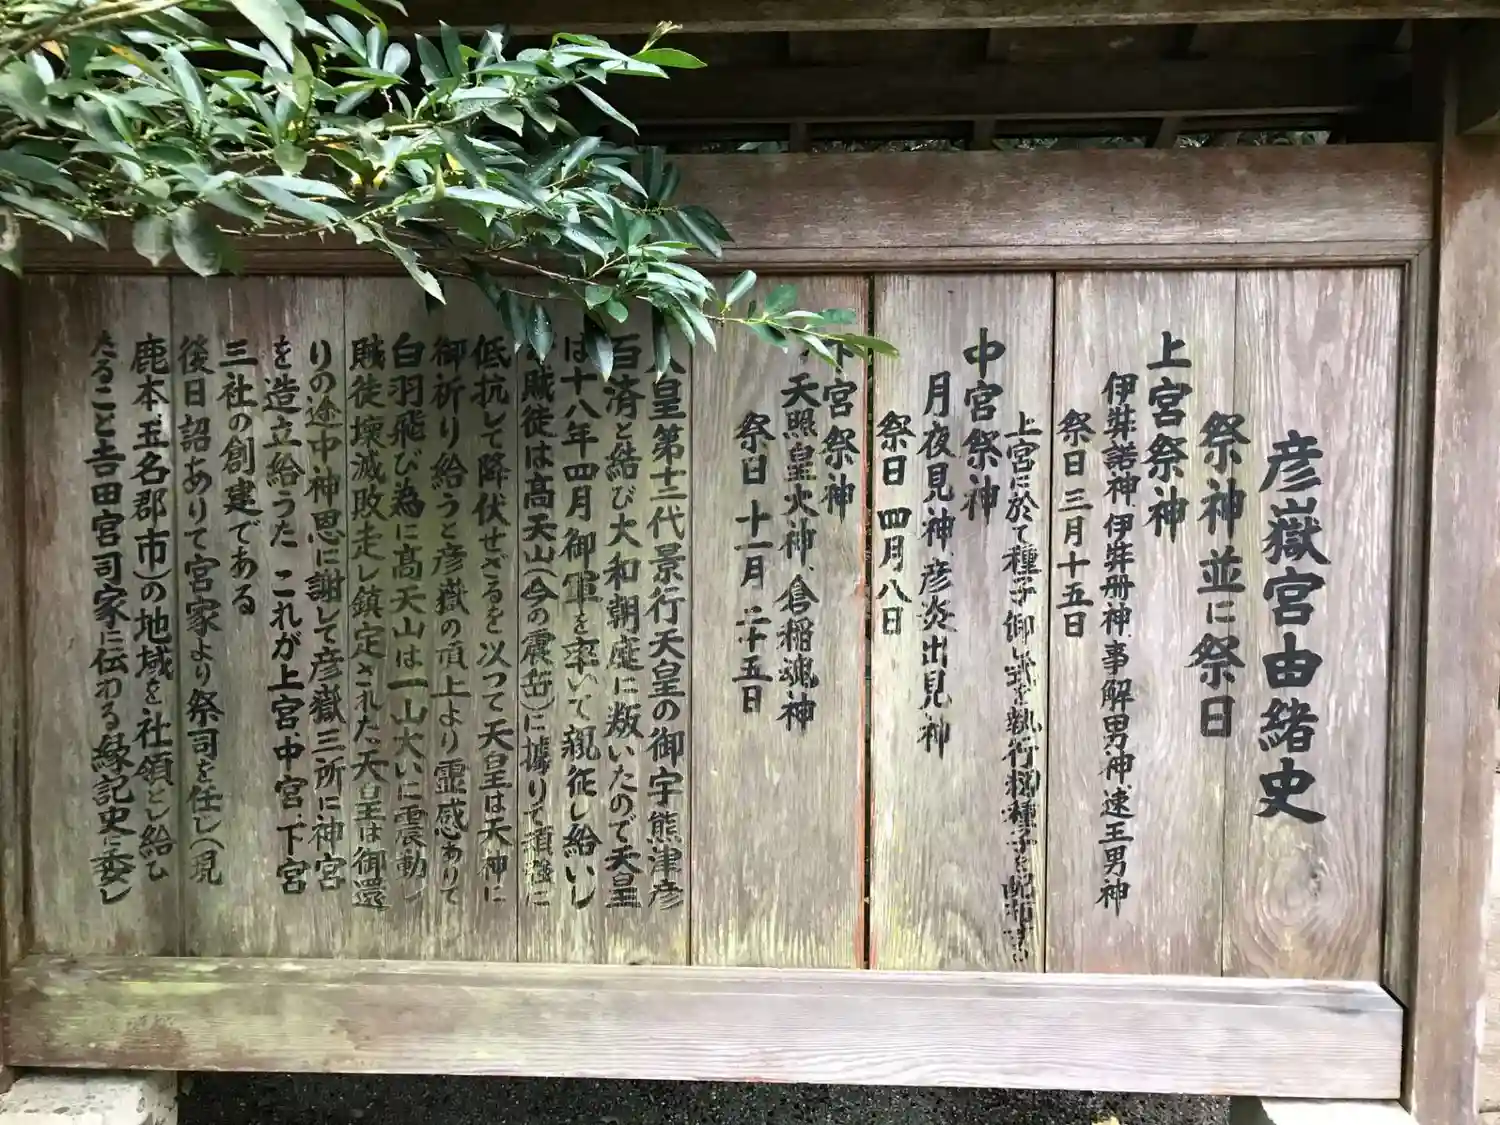 彦嶽宮由緒史
祭神並に祭日
上宮祭神
伊弉諾神、伊弉册神、事解男神、速玉男神
祭日 三月十五日
上宮に於て種子御し式を執行籾種子を配布す
中宮祭神
月夜見神、彦炎出見神
祭日 四月八日
宮祭神
天照皇火神、倉稲魂神
祭日 十一月二十五日
皇第十二代景行天皇の御宇熊津彦
百済と結び大和朝庭に叛いたので天皇
は十八年四月御軍を率いて親征し給いし
賊徒は高天山(今の震岳)に據りて頑強に
低抗して降伏せざるを以つて天皇は天神に
御祈り給うと彦嶽の頂上より霊感ありて
白羽飛び為に高天山は一山大いに震動し
賊徒壊滅敗走し鎮定された天皇は御還
りの途中神思に謝して彦嶽三所に神宮
を造立給うた これが上宮、中宮、下宮
三社の創建である
後日詔ありて宮家より祭司を任し(現
鹿本、玉名郡市)の地域を社領とし給ひ
たること吉田宮司家に伝わる縁記史に委し